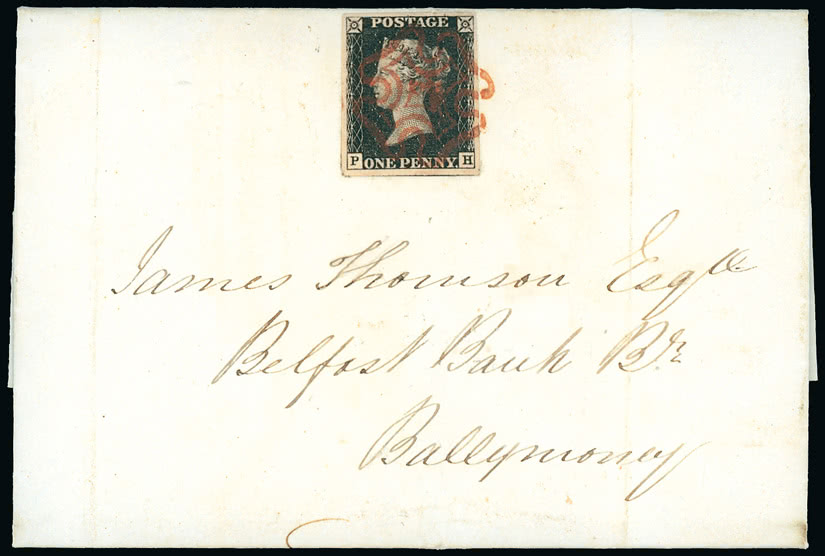 POSTAGE
P ONE PENNY. H
James Thomson Esqre
Belfast Bank Br.
Ballymoney